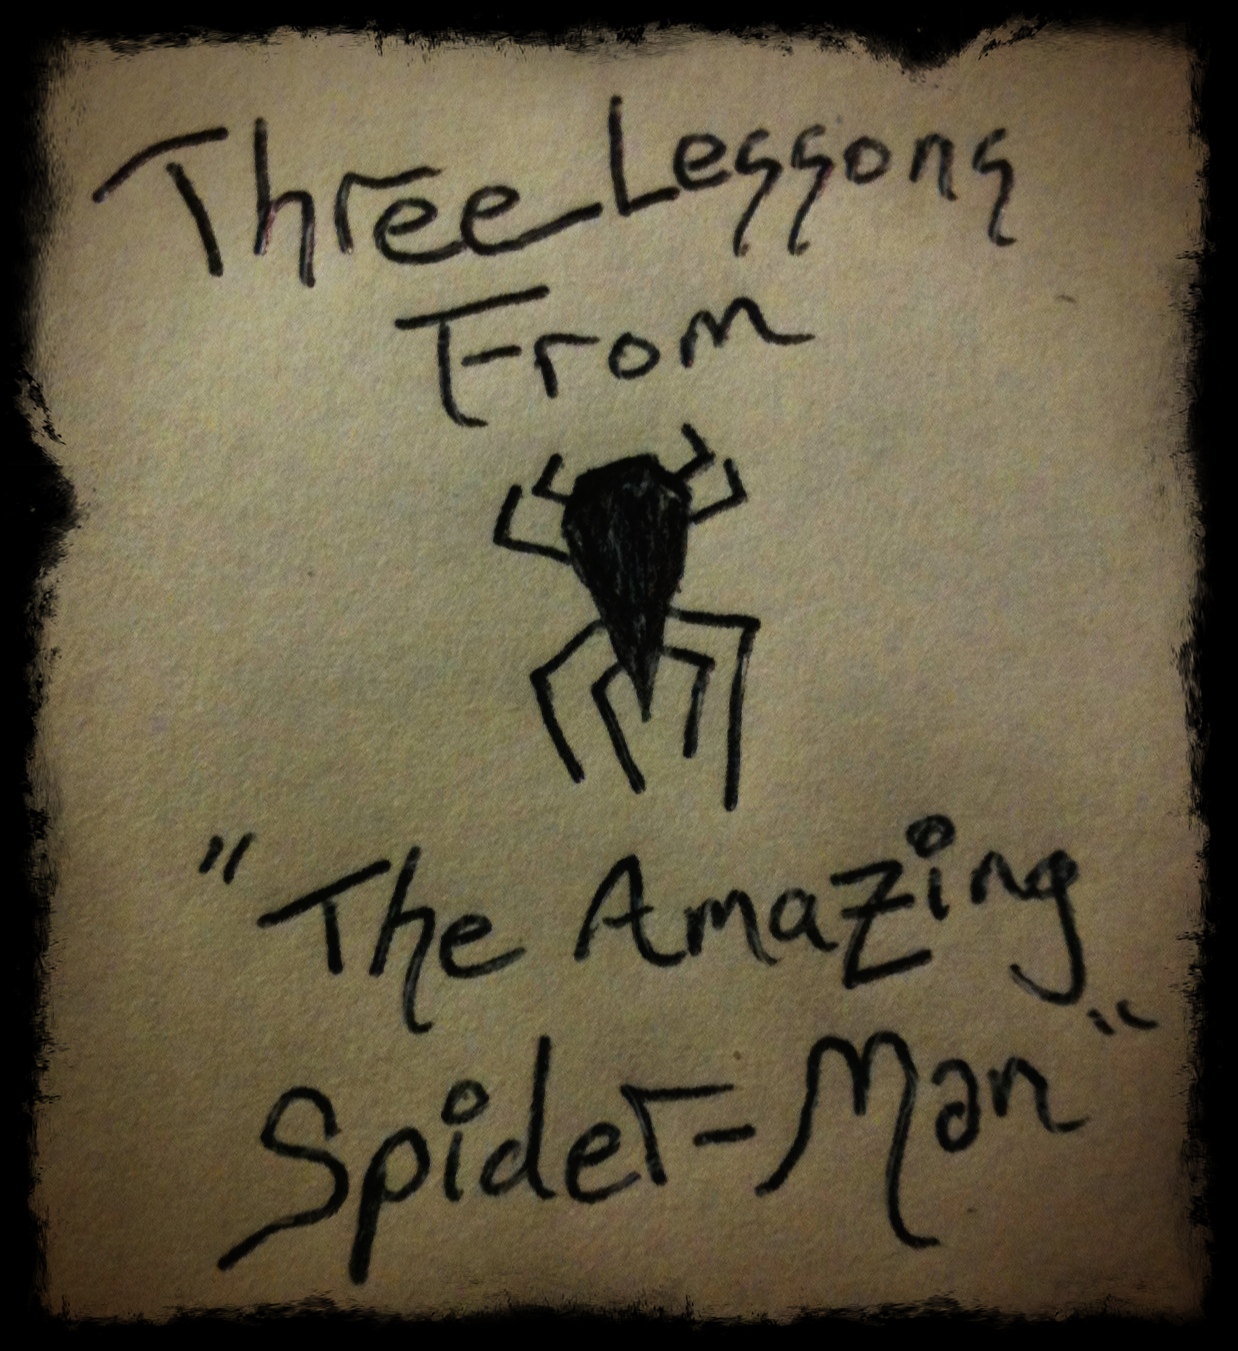 Three Lessons
From
"The Amazing
Spider-Man"